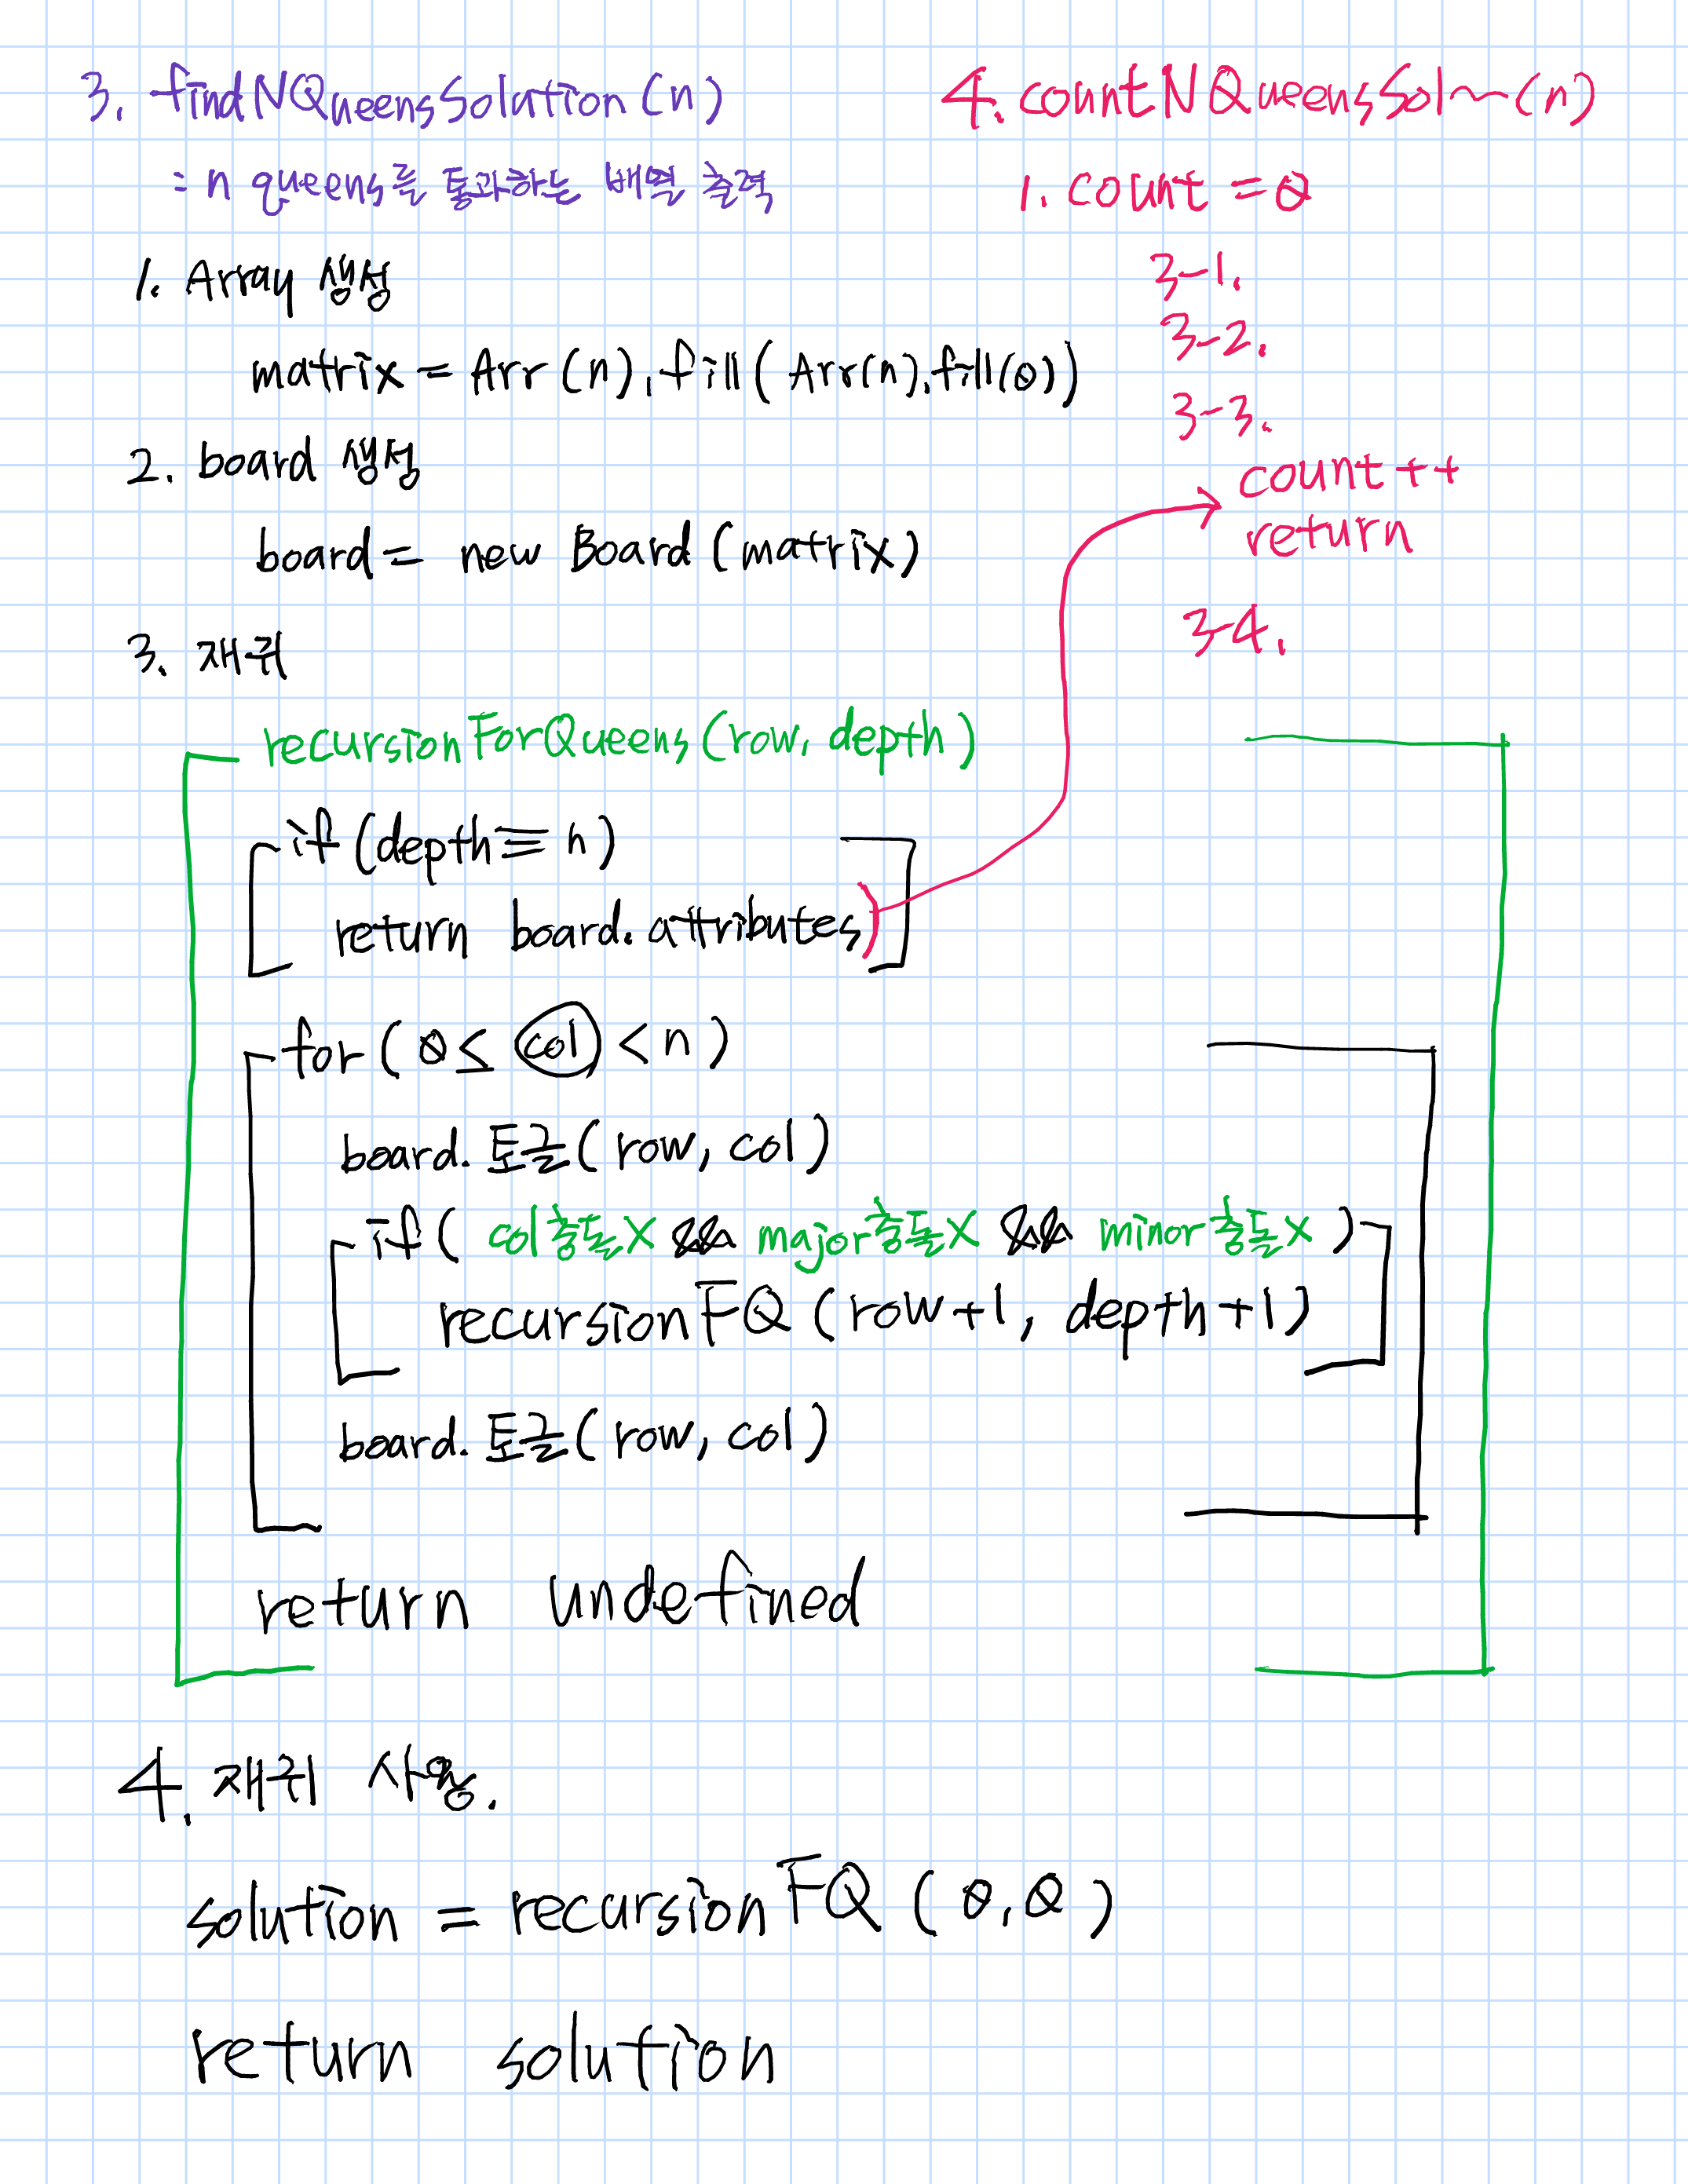 3. findNQueensSolution(n)
= n queens를 통과하는 배열 출력
1. Array 생성
matrix = Arr(n).fill(Arr(n).fill(0))
2. board 생성
board = new Board(matrix)
3. 재귀
recursionForQueens(row, depth)
if(depth≡n)
return board.attributes
for(0≤ col <n)
board.토글(row, col)
if( col충돌X && major충돌X && minor충돌X )
recursionFQ(row+1, depth+1)
board.토글(row, col)
return undefined
4. 재귀 사용.
solution = recursionFQ(0,0)
return solution
4. countNQueensSol~(n)
1. count = 0
3-1.
3-2.
3-3.
count++
return
3-4.